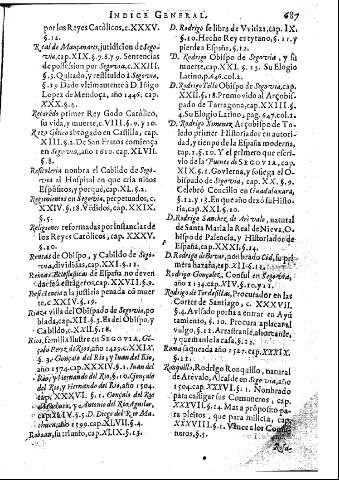 INDICE GENERAL.
687
por los Reyes Católicos, c. XXXV.
§. 12.
Real de Mançanares, jurisdicion de Segovia, cap. XIX. §. 7. 8. y 9. Sentencias
de possession por Segovia, c. XXIII.
§. 3. Quitado, y restituido à Segovia,
§. 19. Dado vltimamente à D. Iñigo
Lopez de Mendoça, año 1446. cap.
XXX. §. 4.
Recaredo primer Rey Godo Catòlico,
su vida, y muerte, c. VIII. §. 9. y 10.
Rezo Gotico abrogado en Castilla, cap.
XIII. §. 2. De San Frutos comiença
en Segovia, año 1610. cap. XLVII.
§. 8.
Refitoleria nombra el Cabildo de Segovia al Hospital en que cria niños
Espòsitos, y porquè, cap. XL. §. 2.
Regimientos en Segovia, perpetuados, c.
XXIV. §. 18. Vēdidos, cap. XXIX.
§. 5.
Religiones reformadas por instancias de
los Reyes Catòlicos, cap. XXXV.
§. 10.
Rentas de Obispo, y Cabildo de Segovia, divididas, cap. XXI. §. 11.
Rentas Eclesiasticas de España no deven
darse à estrāgeros, cap. XXVII. §. 9.
à la justicia penada cō muerte, c. XXIV. §. 19.
Riaza villa del Obispado de Segovia, poblada, cap. XII. §. 5. Es del Obispo, y
Cabildo, c. XVII. §. 18.
Rios, familia ilustre en SEGOVIA, Gōçalo Perez del Rio, año 1429. c. XXIX.
§. 3. Gonçalo del Rio, y Iuan del Rio,
año 1574. cap. XXXIV. §. 1. Iuan del
Rio, y Hernando del Rio, §. 10. Gonçalo del
Rio, y Hernando del Rio, año 1504.
cap. XXXVI. §. 1. Gonçalo del Rio
y Antonio del Rio, Aguilar,
cap. XLIV. §. 5. D. Diego del Rio Machuca, año 1599. cap. XLVII. §. 4.
su triunfo, cap. XI. §. 13.
D. Rodrigo se libra de Vvitiza, cap. IX.
§. 10. Hecho Rey es tyrano, §. 11. y
pierde à España, §. 12.
D. Rodrigo Obispo de Segovia, y su
muerte, cap. XXI. §. 13. Su Elogio
Latino, p. 646. col. 2.
D. Rodrigo Tello Obispo de Segovia, cap.
XXII. §. 18. Promovido al Arçobispado de Tarragona, cap. XXIII. §.
4. Su Elogio Latino, pag. 647. col. 2.
D. Rodrigo Ximenez, Arçobispo de Toledo primer Historiador en autoridad, y tiempo de la España moderna,
cap. I. §. 10. Y el primero que escrivio de la Puente de SEGOVIA, cap.
IX. §. 1. Govierna, y sosiega el Obispado de Segovia, cap. XX. §. 9.
Celebrò Concilio en Guadalaxara,
§. 12. y 13. En que año dexò su Historia, cap. XXI. §. 10.
D. Rodrigo Sanchez de Arevalo, natural
de Santa Maria la Real de Nieva, Obispo de Palencia, y Historiador de
España, cap. XXXI. §. 14.
D. Rodrigo de Bivar, nonbrado Cid, su primera hazaña, cap. XII. §. 13.
Rodrigo Gonçalez, Consul en Segovia,
año 1134. cap. XIV. §. 10. y 11.
Rodrigo de Tordesillas, Procurador en las
Cortes de Santiago, c. XXXVII.
§. 4. Avisado porfia a entrar en Ayūtamiento, §. 10. Procura aplacar al
vulgo, §. 11. Arrastranle, ahorcanle,
y queman le la casa, §. 12.
Roma saqueada año 1527. cap. XXXIX.
§. 11.
Ronquillo, Rodrigo Ronquillo, natural
de Arèvalo, Alcalde en Segovia, año
1504. cap. XXXVI. §. 1. Nonbrado
para castigar sus Comuneros, cap.
XXXVII. §. 14. Mas à proposito para pleitos, que para milicia, cap.
XXXVIII. §. 1. Vence à los Comuneros, §. 5.